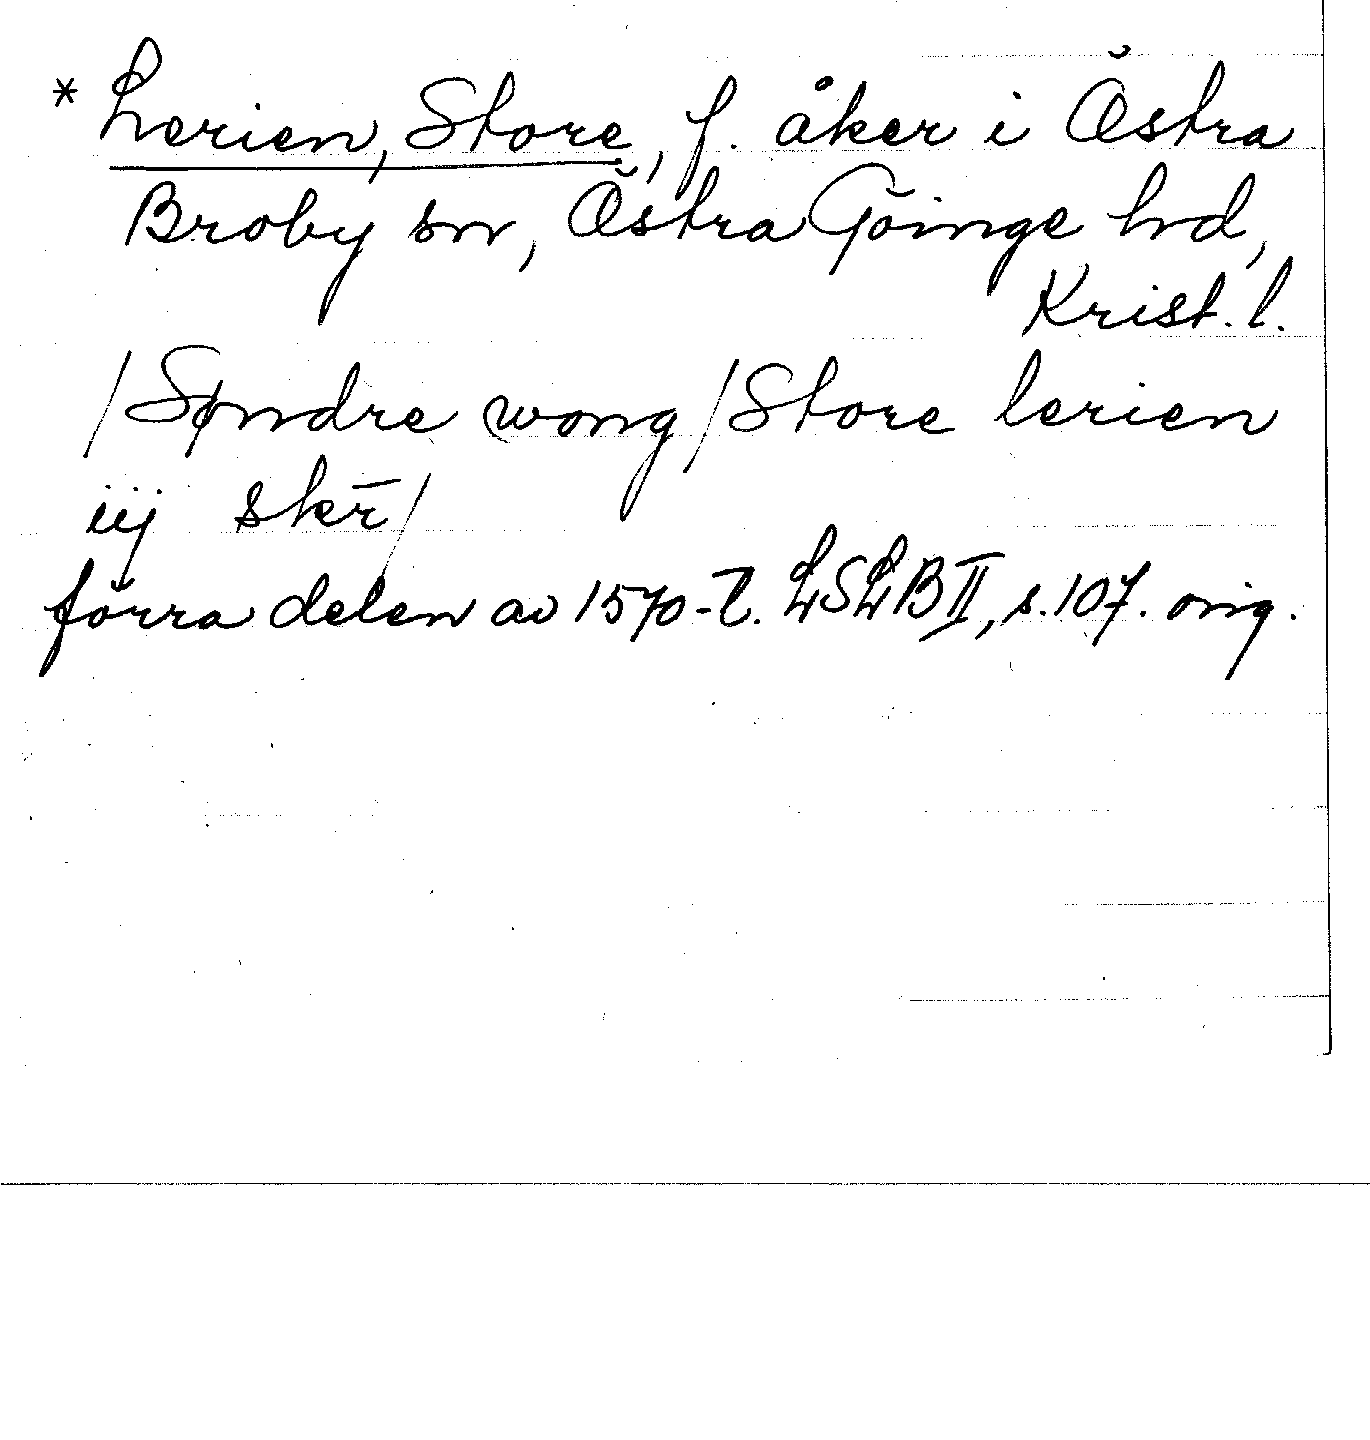 * Lerien, Store, f. åker i Östra
Broby sn, Östra Göinge hd,
Krist. l.
/Søndre wong/Store lerien
iij skr̄/
förra delen av 1570-t. LSLB II, s. 107. orig.